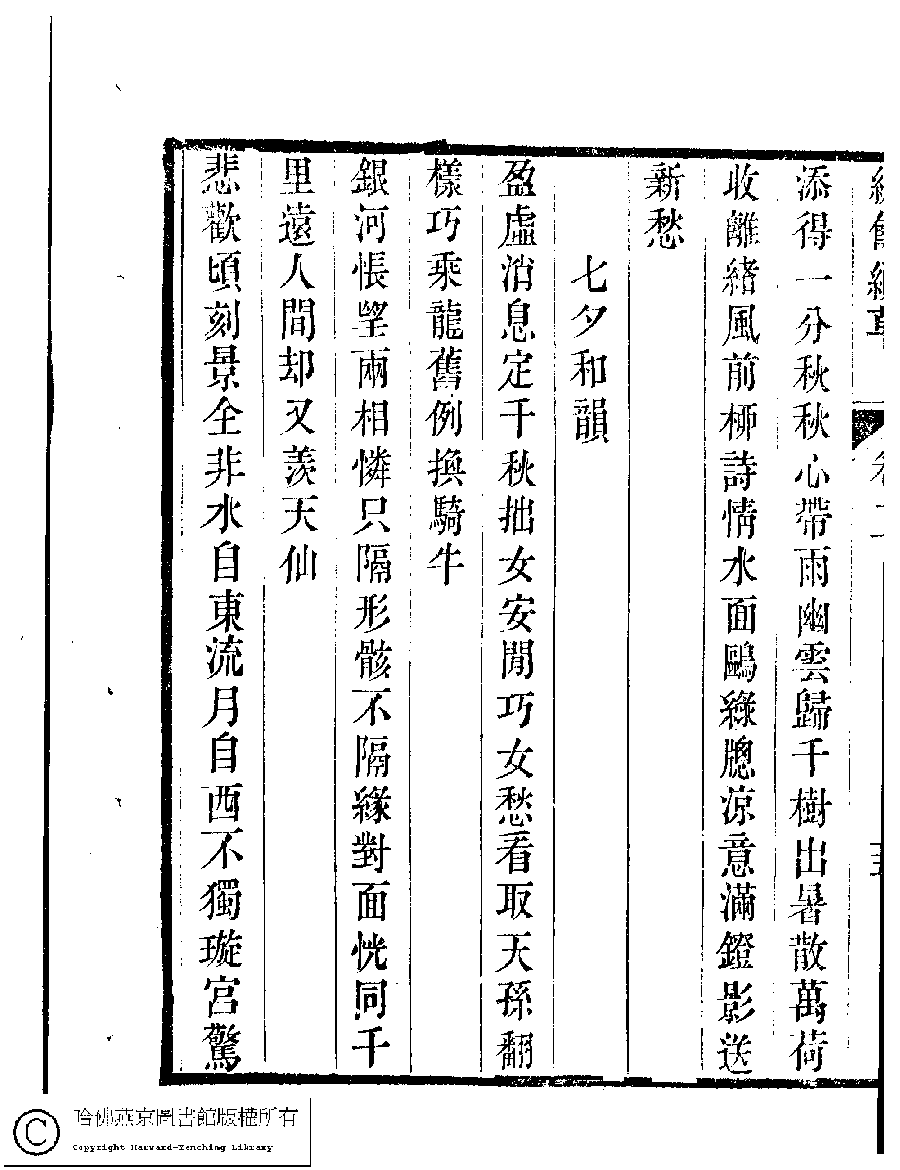 卷二
添得一分秋秋心帶雨幽雲歸千樹出暑散萬荷
收離緒風前桺詩情水面鷗綠牕涼意滿鐙影送
新愁
七夕和韻
盈虛消息定千秋拙女安閒巧女愁看取天孫翻
樣巧乘龍舊例換騎牛
銀河悵望兩相憐只隔形骸不隔緣對面恍同千
里遠人間却又羨天仙
悲歡頃刻景全非水自東流月自西不獨璇宮驚
哈佛燕京圖書館版權所有
Copyright Harvard-Yenching Library